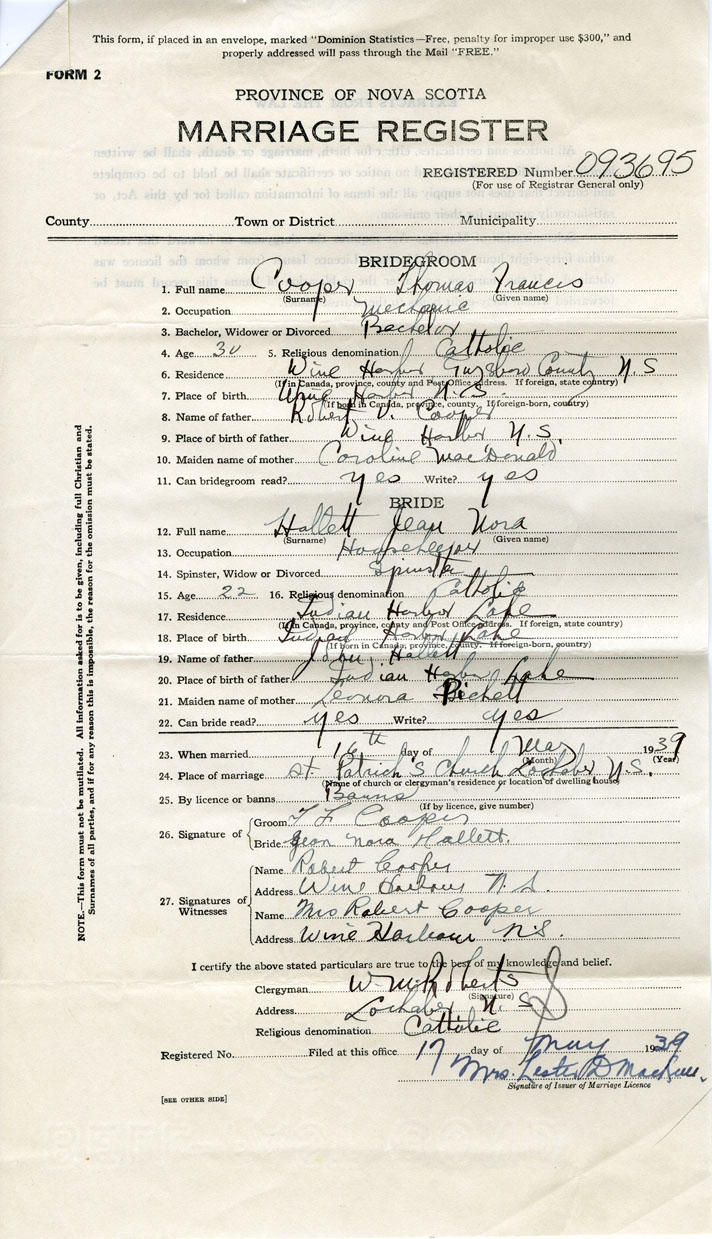 This form, if placed in an envelope, marked "Dominion Statistics—Free, penalty for improper use $300," and
properly addressed will pass through the Mail "FREE."
FORM 2
PROVINCE OF NOVA SCOTIA
MARRIAGE REGISTER
REGISTERED Number 093695
(For use of Registrar General only)
County Town or District Municipality
BRIDEGROOM
1. Full name Cooper Thomas Francis
(Surname) (Given name)
2. Occupation Mechanic
3. Bachelor, Widower or Divorced Bachelor
4. Age 30 5. Religious denomination Catholic
6. Residence Wine Harbor Guysboro County N.S
(If in Canada, province, county and Post Office address. If foreign, state country)
7. Place of birth Wine Harbor N.S.
(If born in Canada, province, county. If foreign-born, country)
8. Name of father Robert V. Cooper
9. Place of birth of father Wine Harbor N.S.
10. Maiden name of mother Caroline MacDonald
11. Can bridegroom read? yes Write? yes
BRIDE
12. Full name Hallett Jean Nora
(Surname) (Given name)
13. Occupation Housekeeper
14. Spinster, Widow or Divorced Spinster
15. Age 22 16. Religious denomination Catholic
17. Residence Indian Harbor Lake
(If in Canada, province, county and Post Office address. If foreign, state country)
18. Place of birth Indian Harbor Lake
(If born in Canada, province, county. If foreign-born, country)
19. Name of father John J. Hallett
20. Place of birth of father Indian Harbor Lake
21. Maiden name of mother Leonora Pichett
22. Can bride read? yes Write? yes
23. When married 16th day of May 1939
(Month) (Year)
24. Place of marriage St. Patrick's Church Lochaber N.S.
(Name of church or clergyman's residence or location of dwelling house)
25. By licence or banns Banns
(If by licence, give number)
26. Signature of Groom T F Cooper
Bride Jean Nora Hallett.
27. Signatures of Witnesses Name Robert Cooper
Address Wine Harbour N.S.
Name Mrs Robert Cooper
Address Wine Harbour N.S.
I certify the above stated particulars are true to the best of my knowledge and belief.
Clergyman W M Roberts
(Signature)
Address Lochaber N.S
Religious denomination Catholic
Registered No. Filed at this office 17 day of May 1939
Mrs. Lester D
Signature of Issuer of Marriage Licence
[SEE OTHER SIDE]
NOTE.—This form must not be mutilated. All information asked for is to be given, including full Christian and
Surnames of all parties, and if for any reason this is impossible, the reason for the omission must be stated.